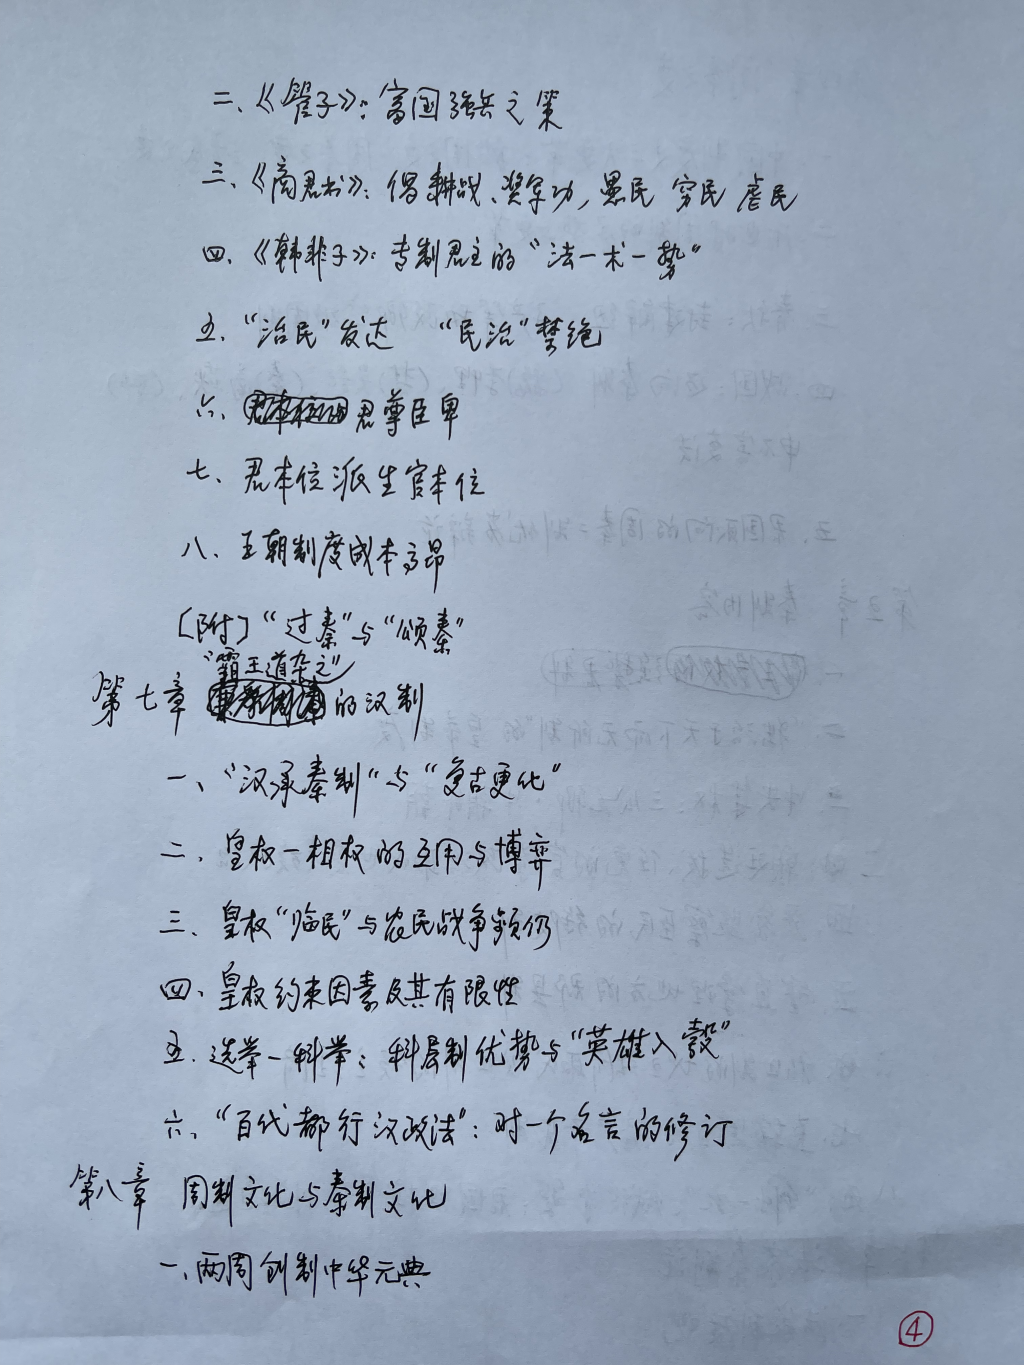 二、《管子》：富国强兵之策
三、《商君书》：倡耕战、奖军功，愚民 穷民 虐民
四、《韩非子》：专制君主的“法—术—势”
五、“治民”发达 “民治”禁绝
六、君尊臣卑
七、君本位派生官本位
八、王朝制度成本高昂
〔附〕“过秦”与“颂秦”
“霸王道杂之”
第七章 的汉制
一、“汉承秦制”与“复古更化”
二、皇权—相权的互用与博弈
三、皇权“临民”与农民战争频仍
四、皇权约束因素及其有限性
五、选举—科举：科层制优势与“英雄入彀”
六、“百代都行汉政法”：对一个名言的修订
第八章 周制文化与秦制文化
一、两周创制中华元典
④